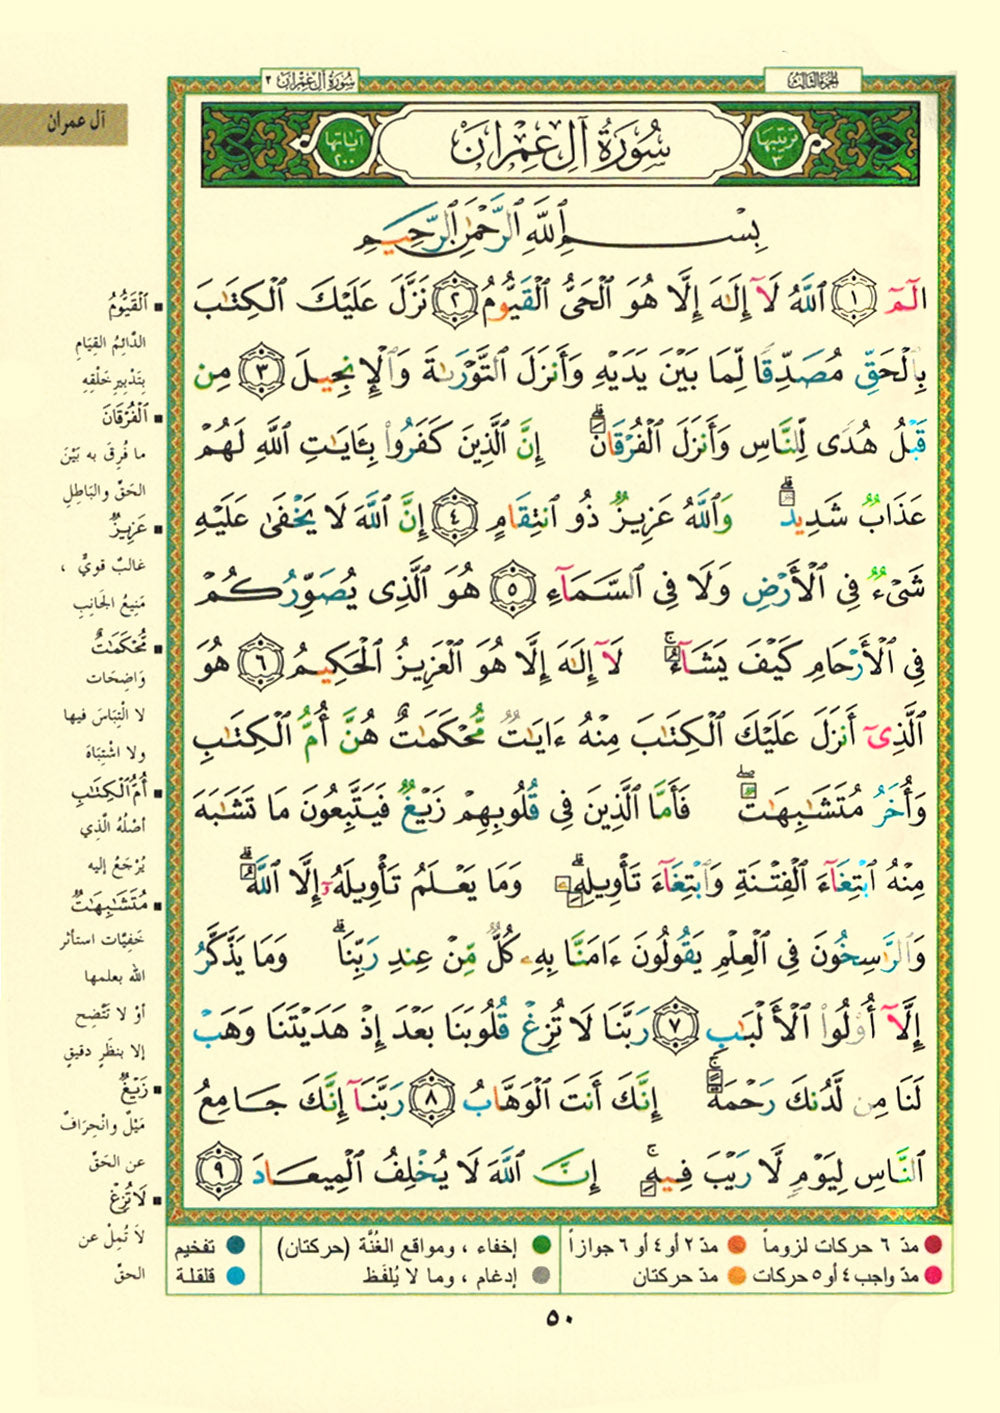 الجزء الثالث
سورة آل عمران ٣
آل عمران
ترتيبها ٣
سُورَةُ آلِ عِمْرَان
آياتها ٢٠٠
بِسْمِ ٱللَّهِ ٱلرَّحْمَٰنِ ٱلرَّحِيمِ
الٓمٓ ١ ٱللَّهُ لَآ إِلَٰهَ إِلَّا هُوَ ٱلْحَىُّ ٱلْقَيُّومُ ٢ نَزَّلَ عَلَيْكَ ٱلْكِتَٰبَ
بِٱلْحَقِّ مُصَدِّقًا لِّمَا بَيْنَ يَدَيْهِ وَأَنزَلَ ٱلتَّوْرَىٰةَ وَٱلْإِنجِيلَ ٣ مِن
قَبْلُ هُدًى لِّلنَّاسِ وَأَنزَلَ ٱلْفُرْقَانَ ۗ إِنَّ ٱلَّذِينَ كَفَرُوا۟ بِـَٔايَٰتِ ٱللَّهِ لَهُمْ
عَذَابٌ شَدِيدٌ ۗ وَٱللَّهُ عَزِيزٌ ذُو ٱنتِقَامٍ ٤ إِنَّ ٱللَّهَ لَا يَخْفَىٰ عَلَيْهِ
شَىْءٌ فِى ٱلْأَرْضِ وَلَا فِى ٱلسَّمَآءِ ٥ هُوَ ٱلَّذِى يُصَوِّرُكُمْ
فِى ٱلْأَرْحَامِ كَيْفَ يَشَآءُ ۚ لَآ إِلَٰهَ إِلَّا هُوَ ٱلْعَزِيزُ ٱلْحَكِيمُ ٦ هُوَ
ٱلَّذِىٓ أَنزَلَ عَلَيْكَ ٱلْكِتَٰبَ مِنْهُ ءَايَٰتٌ مُّحْكَمَٰتٌ هُنَّ أُمُّ ٱلْكِتَٰبِ
وَأُخَرُ مُتَشَٰبِهَٰتٌ ۖ فَأَمَّا ٱلَّذِينَ فِى قُلُوبِهِمْ زَيْغٌ فَيَتَّبِعُونَ مَا تَشَٰبَهَ
مِنْهُ ٱبْتِغَآءَ ٱلْفِتْنَةِ وَٱبْتِغَآءَ تَأْوِيلِهِۦ ۗ وَمَا يَعْلَمُ تَأْوِيلَهُۥٓ إِلَّا ٱللَّهُ ۗ
وَٱلرَّٰسِخُونَ فِى ٱلْعِلْمِ يَقُولُونَ ءَامَنَّا بِهِۦ كُلٌّ مِّنْ عِندِ رَبِّنَا ۗ وَمَا يَذَّكَّرُ
إِلَّآ أُو۟لُوا۟ ٱلْأَلْبَٰبِ ٧ رَبَّنَا لَا تُزِغْ قُلُوبَنَا بَعْدَ إِذْ هَدَيْتَنَا وَهَبْ
لَنَا مِن لَّدُنكَ رَحْمَةً ۚ إِنَّكَ أَنتَ ٱلْوَهَّابُ ٨ رَبَّنَآ إِنَّكَ جَامِعُ
ٱلنَّاسِ لِيَوْمٍ لَّا رَيْبَ فِيهِ ۚ إِنَّ ٱللَّهَ لَا يُخْلِفُ ٱلْمِيعَادَ ٩
▪ ٱلْقَيُّومُ
الدَّائِمُ القِيَامِ
بِتَدْبِيرِ خَلْقِهِ
▪ ٱلْفُرْقَانَ
ما فُرِقَ به بَيْنَ
الحَقِّ والبَاطِلِ
▪ عَزِيزٌ
غالبٌ قويٌّ ،
مَنِيعُ الجَانِبِ
▪ مُّحْكَمَٰتٌ
وَاضِحَات
لا الْتِبَاسَ فيها
ولا اشْتِبَاهَ
▪ أُمُّ ٱلْكِتَٰبِ
أصْلُهُ الَّذِي
يُرْجَعُ إليه
▪ مُتَشَٰبِهَٰتٌ
خَفِيَّات استأثر
الله بعلمها
أوْ لا تَتَّضِح
إلا بنظَرٍ دقيقٍ
▪ زَيْغٌ
مَيْلٌ وانْحِرَافٌ
عن الحَقّ
▪ لَا تُزِغْ
لاَ تُمِلْ عن
الحقّ
مدّ ٦ حركات لزوماً
مدّ ٢ أو ٤ أو ٦ جوازاً
إخفاء ، ومواقع الغُنَّة (حركتان)
تفخيم
مدّ واجب ٤ أو ٥ حركات
مدّ حركتان
إدغام ، وما لا يُلفَظ
قلقلة
٥٠